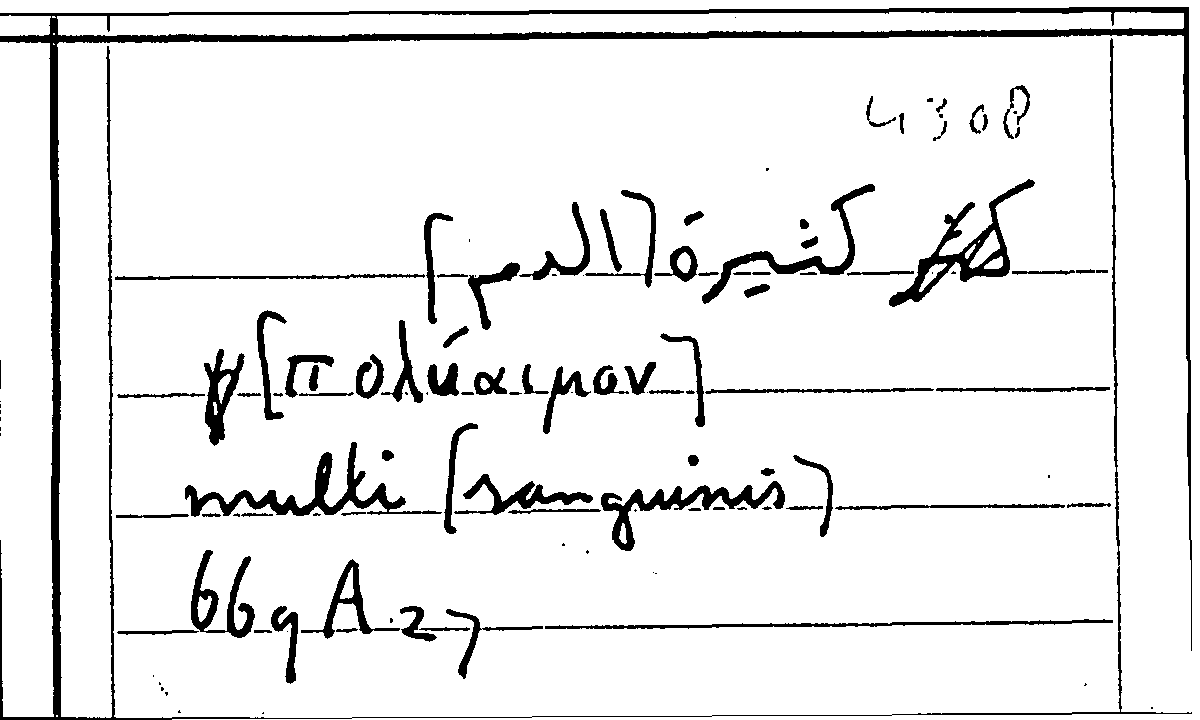 4308
كثيرة [الدم]
[πολύαιμον]
multi [sanguinis]
669 A 27